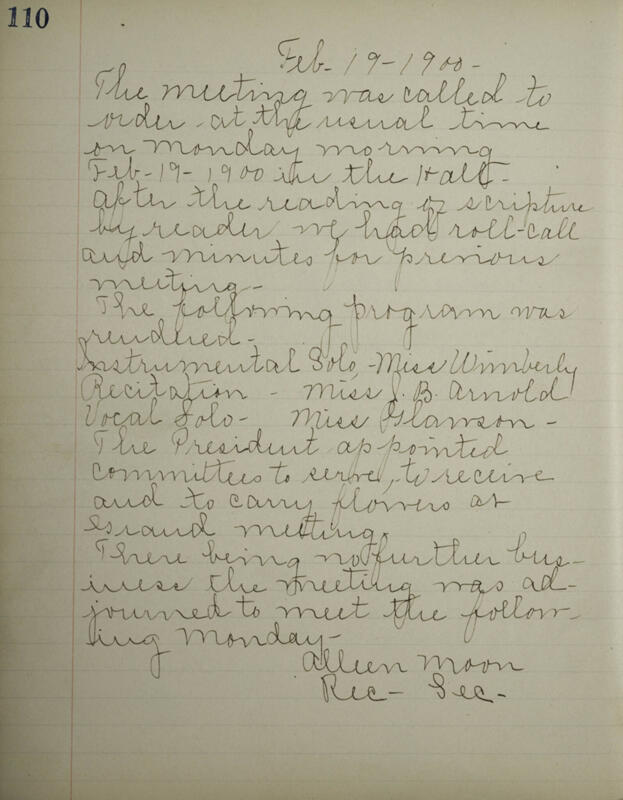 110
Feb- 19-1900-
The meeting was called to
order at the usual time
on Monday morning
Feb-19-1900 in the Hall-
After the reading of scripture
by reader we had roll-call
and minutes for previous
meeting-
The following program was
rendered-
Instrumental Solo, -Miss Wimberly
Recitation - Miss J. B. Arnold
Vocal Solo- Miss Glawson-
The President appointed
committees to serve, to receive
and to carry flowers at
Grand meeting.
There being no further bus-
iness the meeting was ad-
journed to meet the follow-
ing Monday-
Alleen Moon
Rec- Sec-